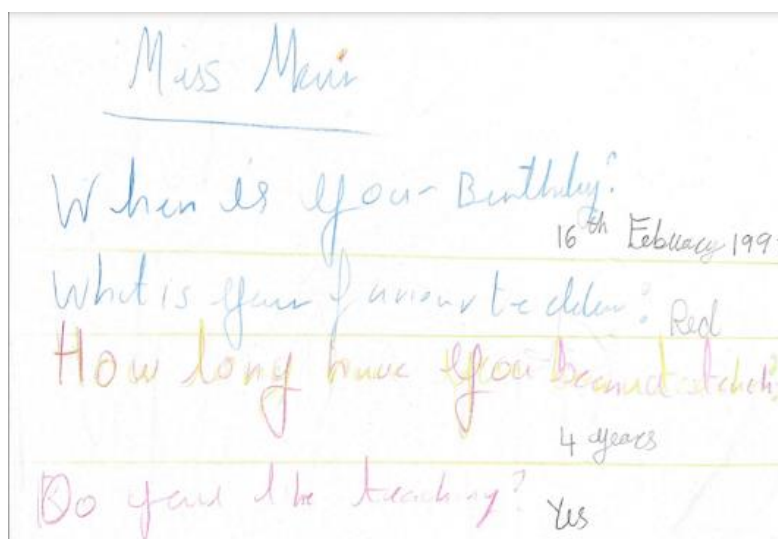 Miss Muir
When is your Birthday?
16th February 199
What is your favourite color? Red
How long have you been a teacher?
4 years
Do you like teaching? Yes